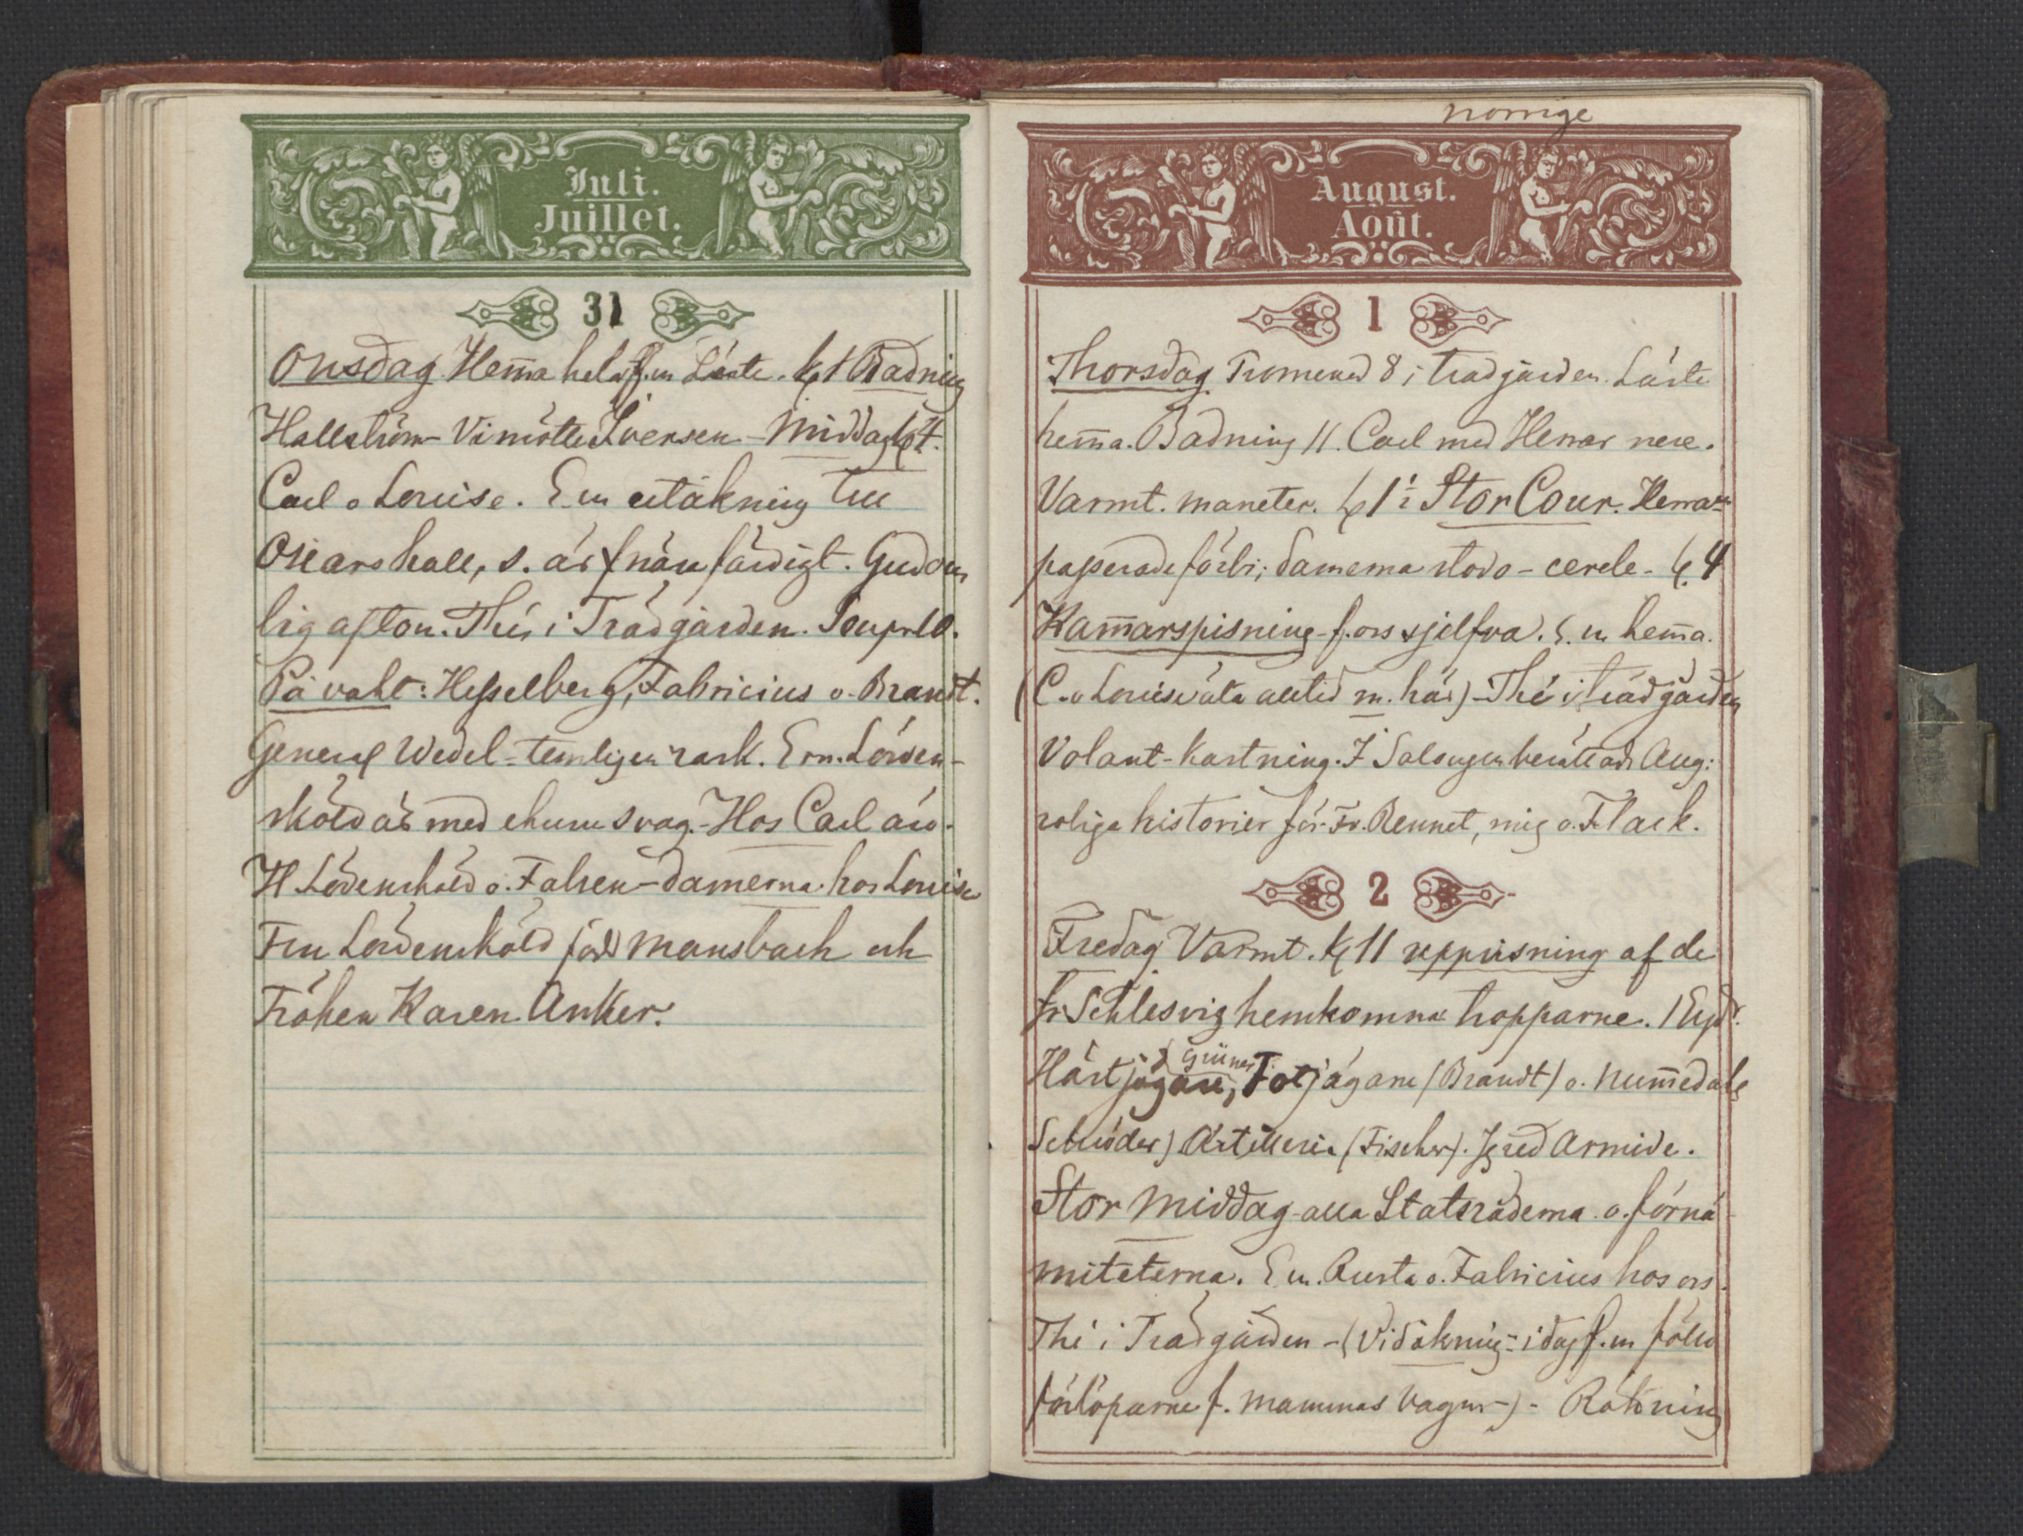 Juli.
Juillet.
31
Onsdag Hem̅a hela f.m Läste. kl 1 Badning
Hallström - Vi mötte Iversen - Middag kl 4.
Carl o Louise. E m utåkning till
Oscarshall, s. är f nära färdigt. Gudom
lig afton. Thé i Trädgården. Soup. 10.
På vakt: Hesselberg, Fabricius o. Brandt.
General Wedel - temligen rask. Löwen-
sköld är med svag. - Hos Carl äro
H Lövensköld o. Falsen - damerna hos Louise
Fru Lövensköld född Mansbach och
Fröken Karen Anker.
norrige
August.
Août.
1
Thorsdag Promenad 8 i trädgården. Läste
hem̅a. Badning 11. Carl med Herrar nere.
Varmt. maneter. kl 1½ Stor Cour. Herrar
passerade förbi; damerna stodo - cercle - kl. 4
Kam̅arspisning f. oss sjelfva. E. m hem̅a.
(C. o Louise äta alltid m. här) - Thé i trädgården
Volant-kastning. I Salongen berättade Aug:
roliga historier för Fr. Bennet, mig o. Flack.
2
Fredag Varmt. kl 11 uppvisning af de
fr Schlesvig hemkomna tropparne.
Hästjägare, Grüner Fotjägare (Brandt) o. Num̅edals
Schröder) Artilleri (Fischer). Jg red Armide.
Stor Middag - alla Statsråderna o. förnä
miteterna. E m. Rusta o. Fabricius hos oss.
Thé i Trädgården - (Vid åkning i dag f.m följd
förlöparne f. mammas vagn -) - Rökning